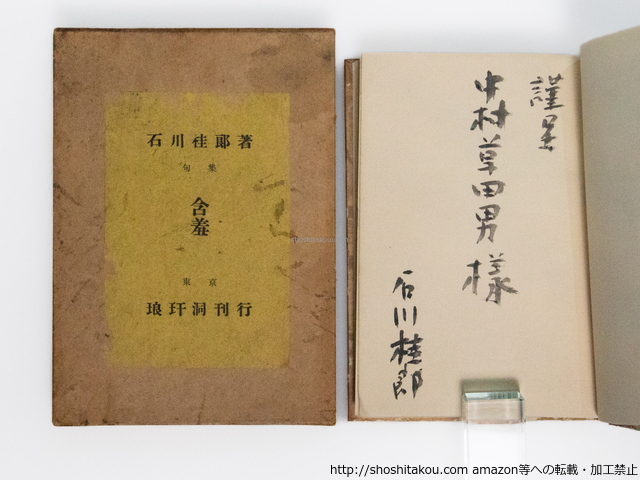 石川桂郎著
句集
含羞
東京
琅玕洞刊行
謹呈
中村草田男様
石川桂郎
shoshitakou.com
http://shoshitakou.com amazon等への転載・加工禁止